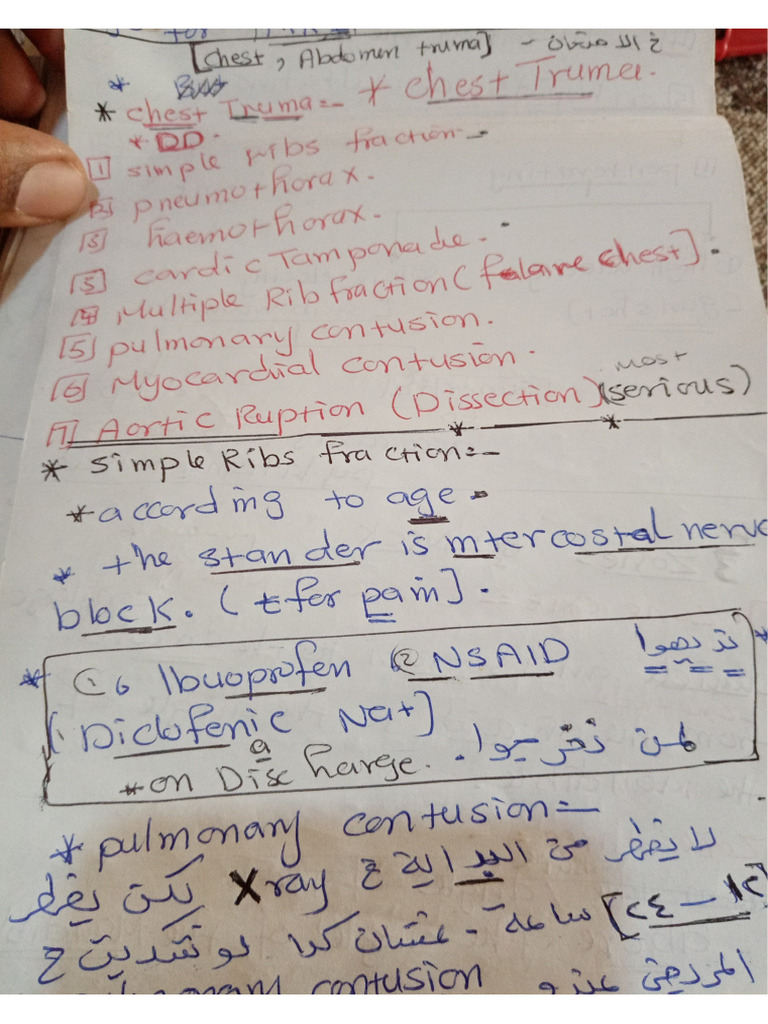 for
[chest, Abdomen truma] - خ الامتحان
* chest Truma:- * chest Truma.
* DD.
[1] simple ribs fraction -
[2] pneumothorax.
[3] haemothorax.
[3] cardic Tamponade.
[4] Multiple Rib fraction (felare chest].
[5] pulmonary contusion.
[6] Myocardial contusion.
most
[7] Aortic Ruption (Dissection) (serious)
* simple Ribs fraction:-
* according to age.
* the stander is intercostal nerve
block. (t for pain].
* ① Ibuoprofen ② NSAID تديهوا
(Diclofenic Na+]
* on Discharge. لمن تخرجوا.
* pulmonary contusion:-
لا يظهر من البداية ح Xray لكن يظهر
[٢٤ - ١٢] ساعة - عشان كدا لو شكيت ح
المريض عندو pulmonary contusion